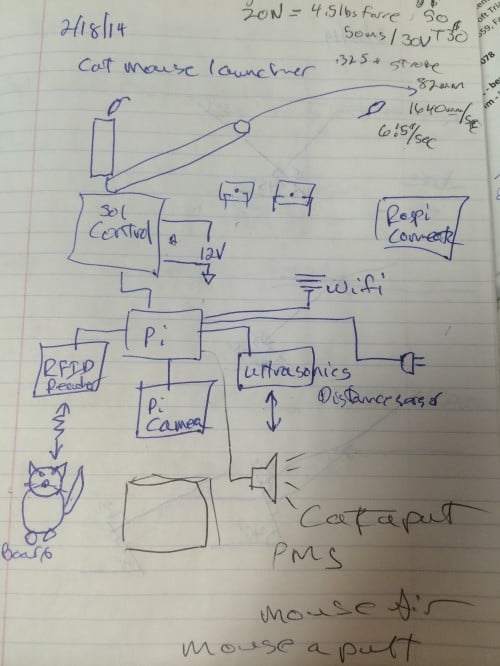 20N = 4.5lbs force, 50
2/18/14
50ms / 30V T30
Cat mouse launcher
.325" stroke
82mm
1640mm/sec
6.5"/sec
Sol
Control
12V
Raspi
Connect
Wifi
Pi
RFID
Reader
Pi
Camera
ultrasonics
Distance sensor
Boaris
Catapult
PMS
Mouse Air
Mouse a pult
078